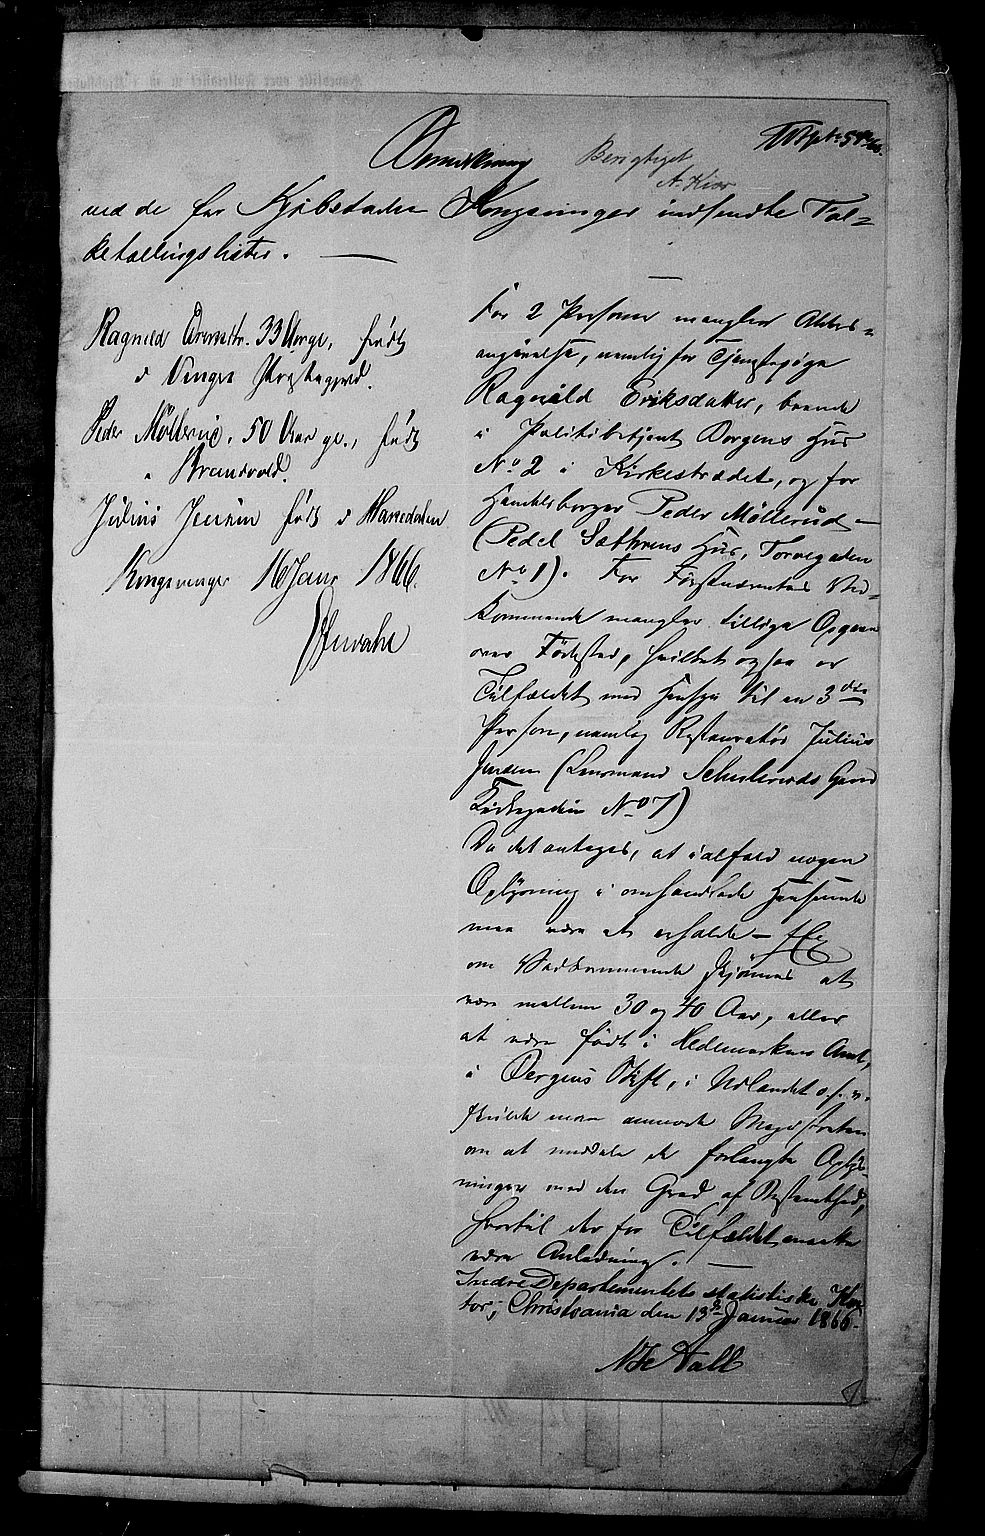 Anmerkning
Berigtiget
A. Kiær
ved de for Kjøbstaden Kongsvinger indsendte Fol-
ketællingslister. —
For 2 Personer mangler Alders-
angivelse, nemlig for Tjenestepige
Ragnild Eriksdatter, boende
i Politibetjent Borgens Hus
No 2 i Kirkestrædet, og for
Handelsborger Peder Møllerud
(Pedel Sæthrens Hus, Torvegaden
No 1). For Førstnævntes Ved-
kommende mangler tillige Opgave
over Fødested, hvilket ogsaa er
Tilfældet med Hensyn til en 3die
Person, nemlig Restauratør Julius
Jensen (Lensmand Schulseruds Gaard
Kirkegaden No 7)
Da det antages, at ialfald nogen
Oplysning i omhandlede Henseende
maa være at erholde — f Ex
om Vedkommende skjønnes at
være mellem 30 og 40 Aar, eller
at være født i Hedemarkens Amt,
i Bergens Stift, i Udlandet o. s. v.
skulde man anmode Magistraten
om at meddele de forlangte Oplys-
ninger med den Grad af Bestemthed,
hvortil der for Tilfældet maatte
være Anledning. —
Indredepartementets statistiske Kon-
tor, Christiania den 13de Januar 1866.
Ragnild 33 Aar gl., født
i Vinger Præstegjeld.
Peder Møllerud, 50 Aar gl., født
i Brandvold.
Julius Jensen født i
Kongsvinger 16 Janr 1866.